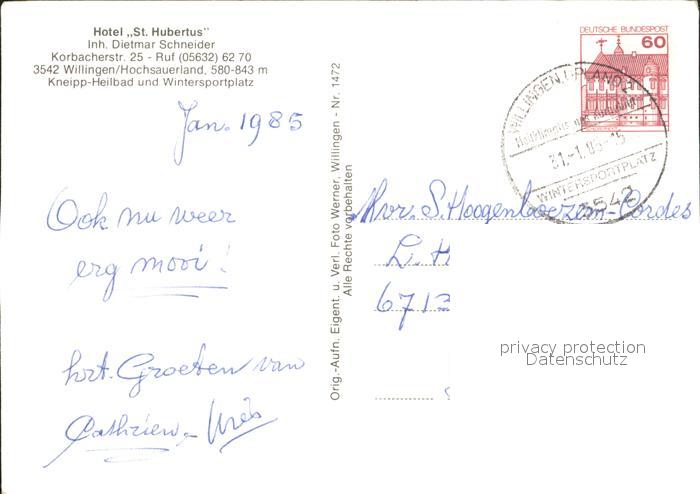 Hotel „St. Hubertus"
Inh. Dietmar Schneider
Korbacherstr. 25 - Ruf (05632) 62 70
3542 Willingen/Hochsauerland, 580-843 m
Kneipp-Heilbad und Wintersportplatz
Jan. 1985
Ook nu weer
erg mooi!
hrt. Groeten van
Cathrien,
Orig.-Aufn. Eigent. u. Verl. Foto Werner, Willingen - Nr. 1472
Alle Rechte vorbehalten
DEUTSCHE BUNDESPOST
60
WILLINGEN, UPLAND
Heilklimatischer
31.-1.85-15
WINTERSPORTPLATZ
3542
Mvr. S. Hoogenboezem-Cordes
L. H
6713
privacy protection
Datenschutz